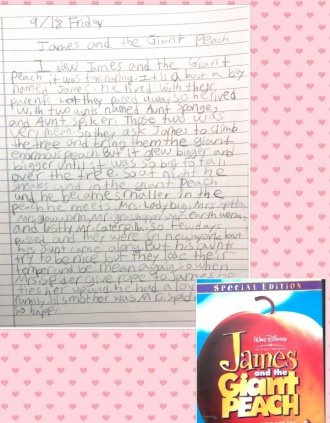 9/18 Friday
James and the Giant Peach
I saw James and the Giant
Peach, it was
about a boy
named James. he lived with their
parents but they passed away so he lived
with two aunts named Aunt Sponge,
and Aunt spiker. Those two was
very mean. so they ask James to climb
the tree and bring them the giant
enormous peach But it grew bigger and
bigger until it was so big to fall
over the tree. So at night he
sneaks and in the giant Peach
and he become smaller. In the
peach he meets Mrs. Lady bug, Mrs. Spider,
Mrs glow worm, Mr. grasshopper, Mr. Earth worm,
and lastly Mr. Caterpillar. so few days
passed and they were in new york but
his aunt came along. But his aunts
try to be nice but they lose their
temper and be mean again so when
Mrs Spider give rope to James he
ties her up and he had a lovely
family his mother was Mrs. Spider
so happy.
Special Edition
Walt Disney
James
and the
Giant
PEACH